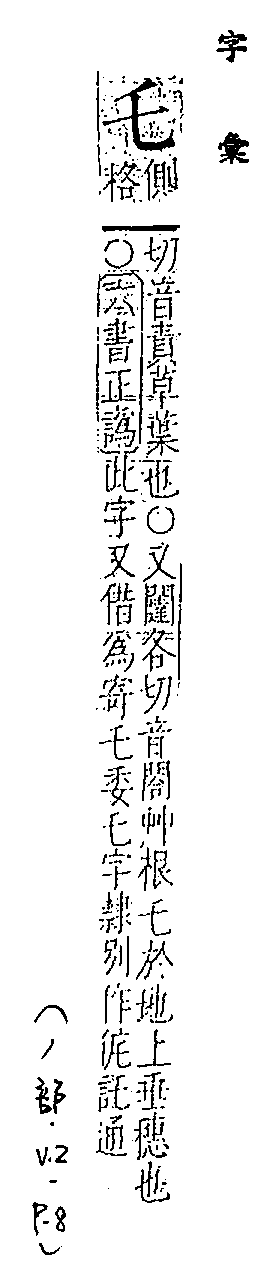 字彙
乇
側
格
切音責草葉也〇又闥各切音閣艸根乇於地上垂穗也
〇六書正譌此字又借爲寄乇委乇字隸別作侂託通
(丿部.V.2-P.8)